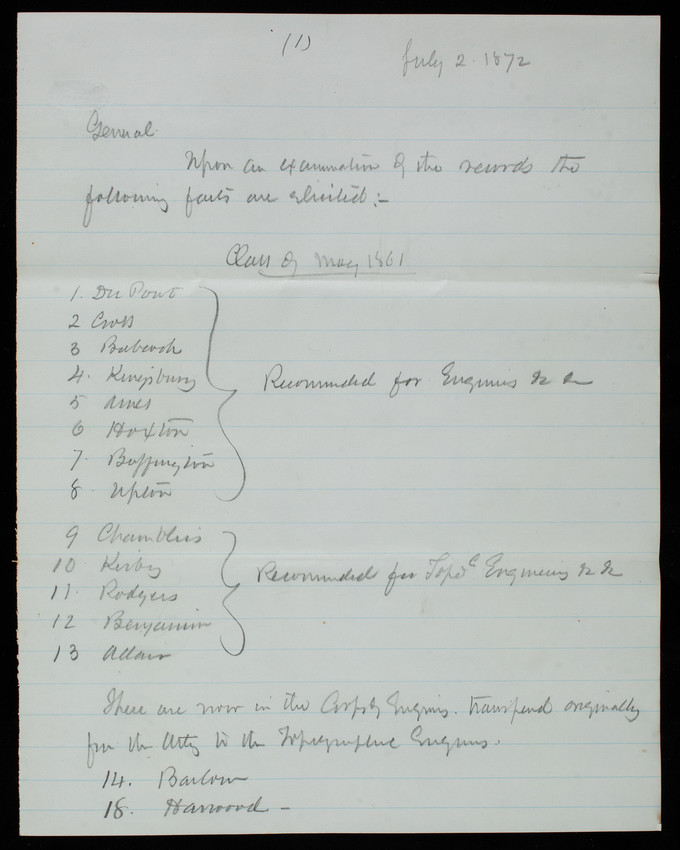 (1)
July 2. 1872
General.
Upon an examination of the records the
following facts are elicited:-
Class of May 1861
1. Du Pont
2 Cross
3 Babcock
4. Kingsbury
5 Ames
6 Hoxton
7. Buffington
8 Upton
Recommended for Engineers &c &c
9 Chambliss
10 Kirby
11. Rodgers
12 Benjamin
13 Adair
Recommended for Topl Engineers &c &c
There are now in the Corps of Engineers. transferred originally
from the Arty to the Topographical Engineers.
14. Barlow
18. Harwood -